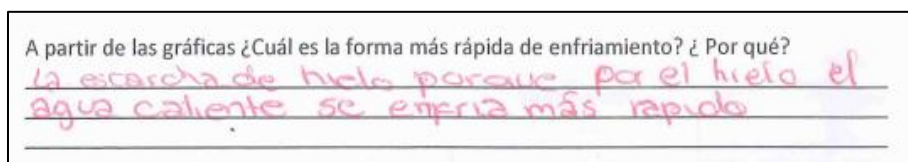 A partir de las gráficas ¿Cuál es la forma más rápida de enfriamiento? ¿ Por qué?
La escarcha de hielo porque por el hielo el
agua caliente se enfria más rapido